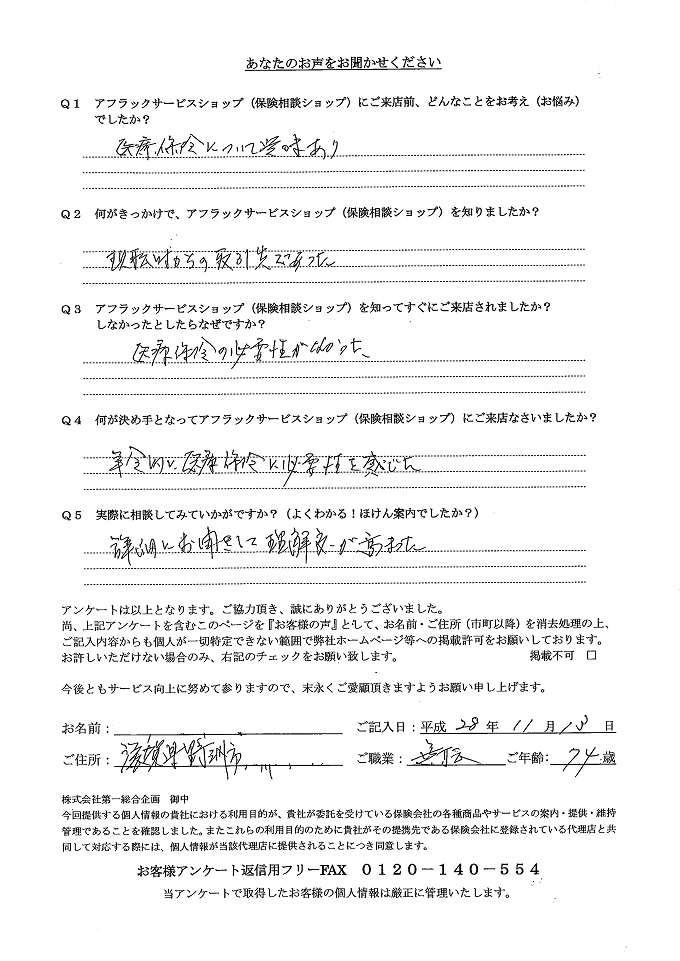 あなたのお声をお聞かせください
Q1 アフラックサービスショップ（保険相談ショップ）にご来店前、どんなことをお考え（お悩み）
でしたか？
医療保険について興味あり
Q2 何がきっかけで、アフラックサービスショップ（保険相談ショップ）を知りましたか？
現役時からの取引先であった
Q3 アフラックサービスショップ（保険相談ショップ）を知ってすぐにご来店されましたか？
しなかったとしたらなぜですか？
医療保険の必要性がわかった
Q4 何が決め手となってアフラックサービスショップ（保険相談ショップ）にご来店なさいましたか？
年令的に医療保険に必要性を感じた
Q5 実際に相談してみていかがですか？（よくわかる！ほけん案内でしたか？）
詳細にお聞きして理解度が高まった
アンケートは以上となります。ご協力頂き、誠にありがとうございました。
尚、上記アンケートを含むこのページを『お客様の声』として、お名前・ご住所（市町以降）を消去処理の上、
ご記入内容からも個人が一切特定できない範囲で弊社ホームページ等への掲載許可をお願いしております。
お許しいただけない場合のみ、右記のチェックをお願い致します。 掲載不可 □
今後ともサービス向上に努めて参りますので、末永くご愛顧頂きますようお願い申し上げます。
お名前： ご記入日：平成 28 年 11 月 13 日
ご住所：滋賀県野洲市 ご職業：無職 ご年齢：74 歳
株式会社第一総合企画 御中
今回提供する個人情報の貴社における利用目的が、貴社が委託を受けている保険会社の各種商品やサービスの案内・提供・維持
管理であることを確認しました。またこれらの利用目的のために貴社がその提携先である保険会社に登録されている代理店と共
同して対応する際には、個人情報が当該代理店に提供されることにつき同意します。
お客様アンケート返信用フリーFAX ０１２０－１４０－５５４
当アンケートで取得したお客様の個人情報は厳正に管理いたします。